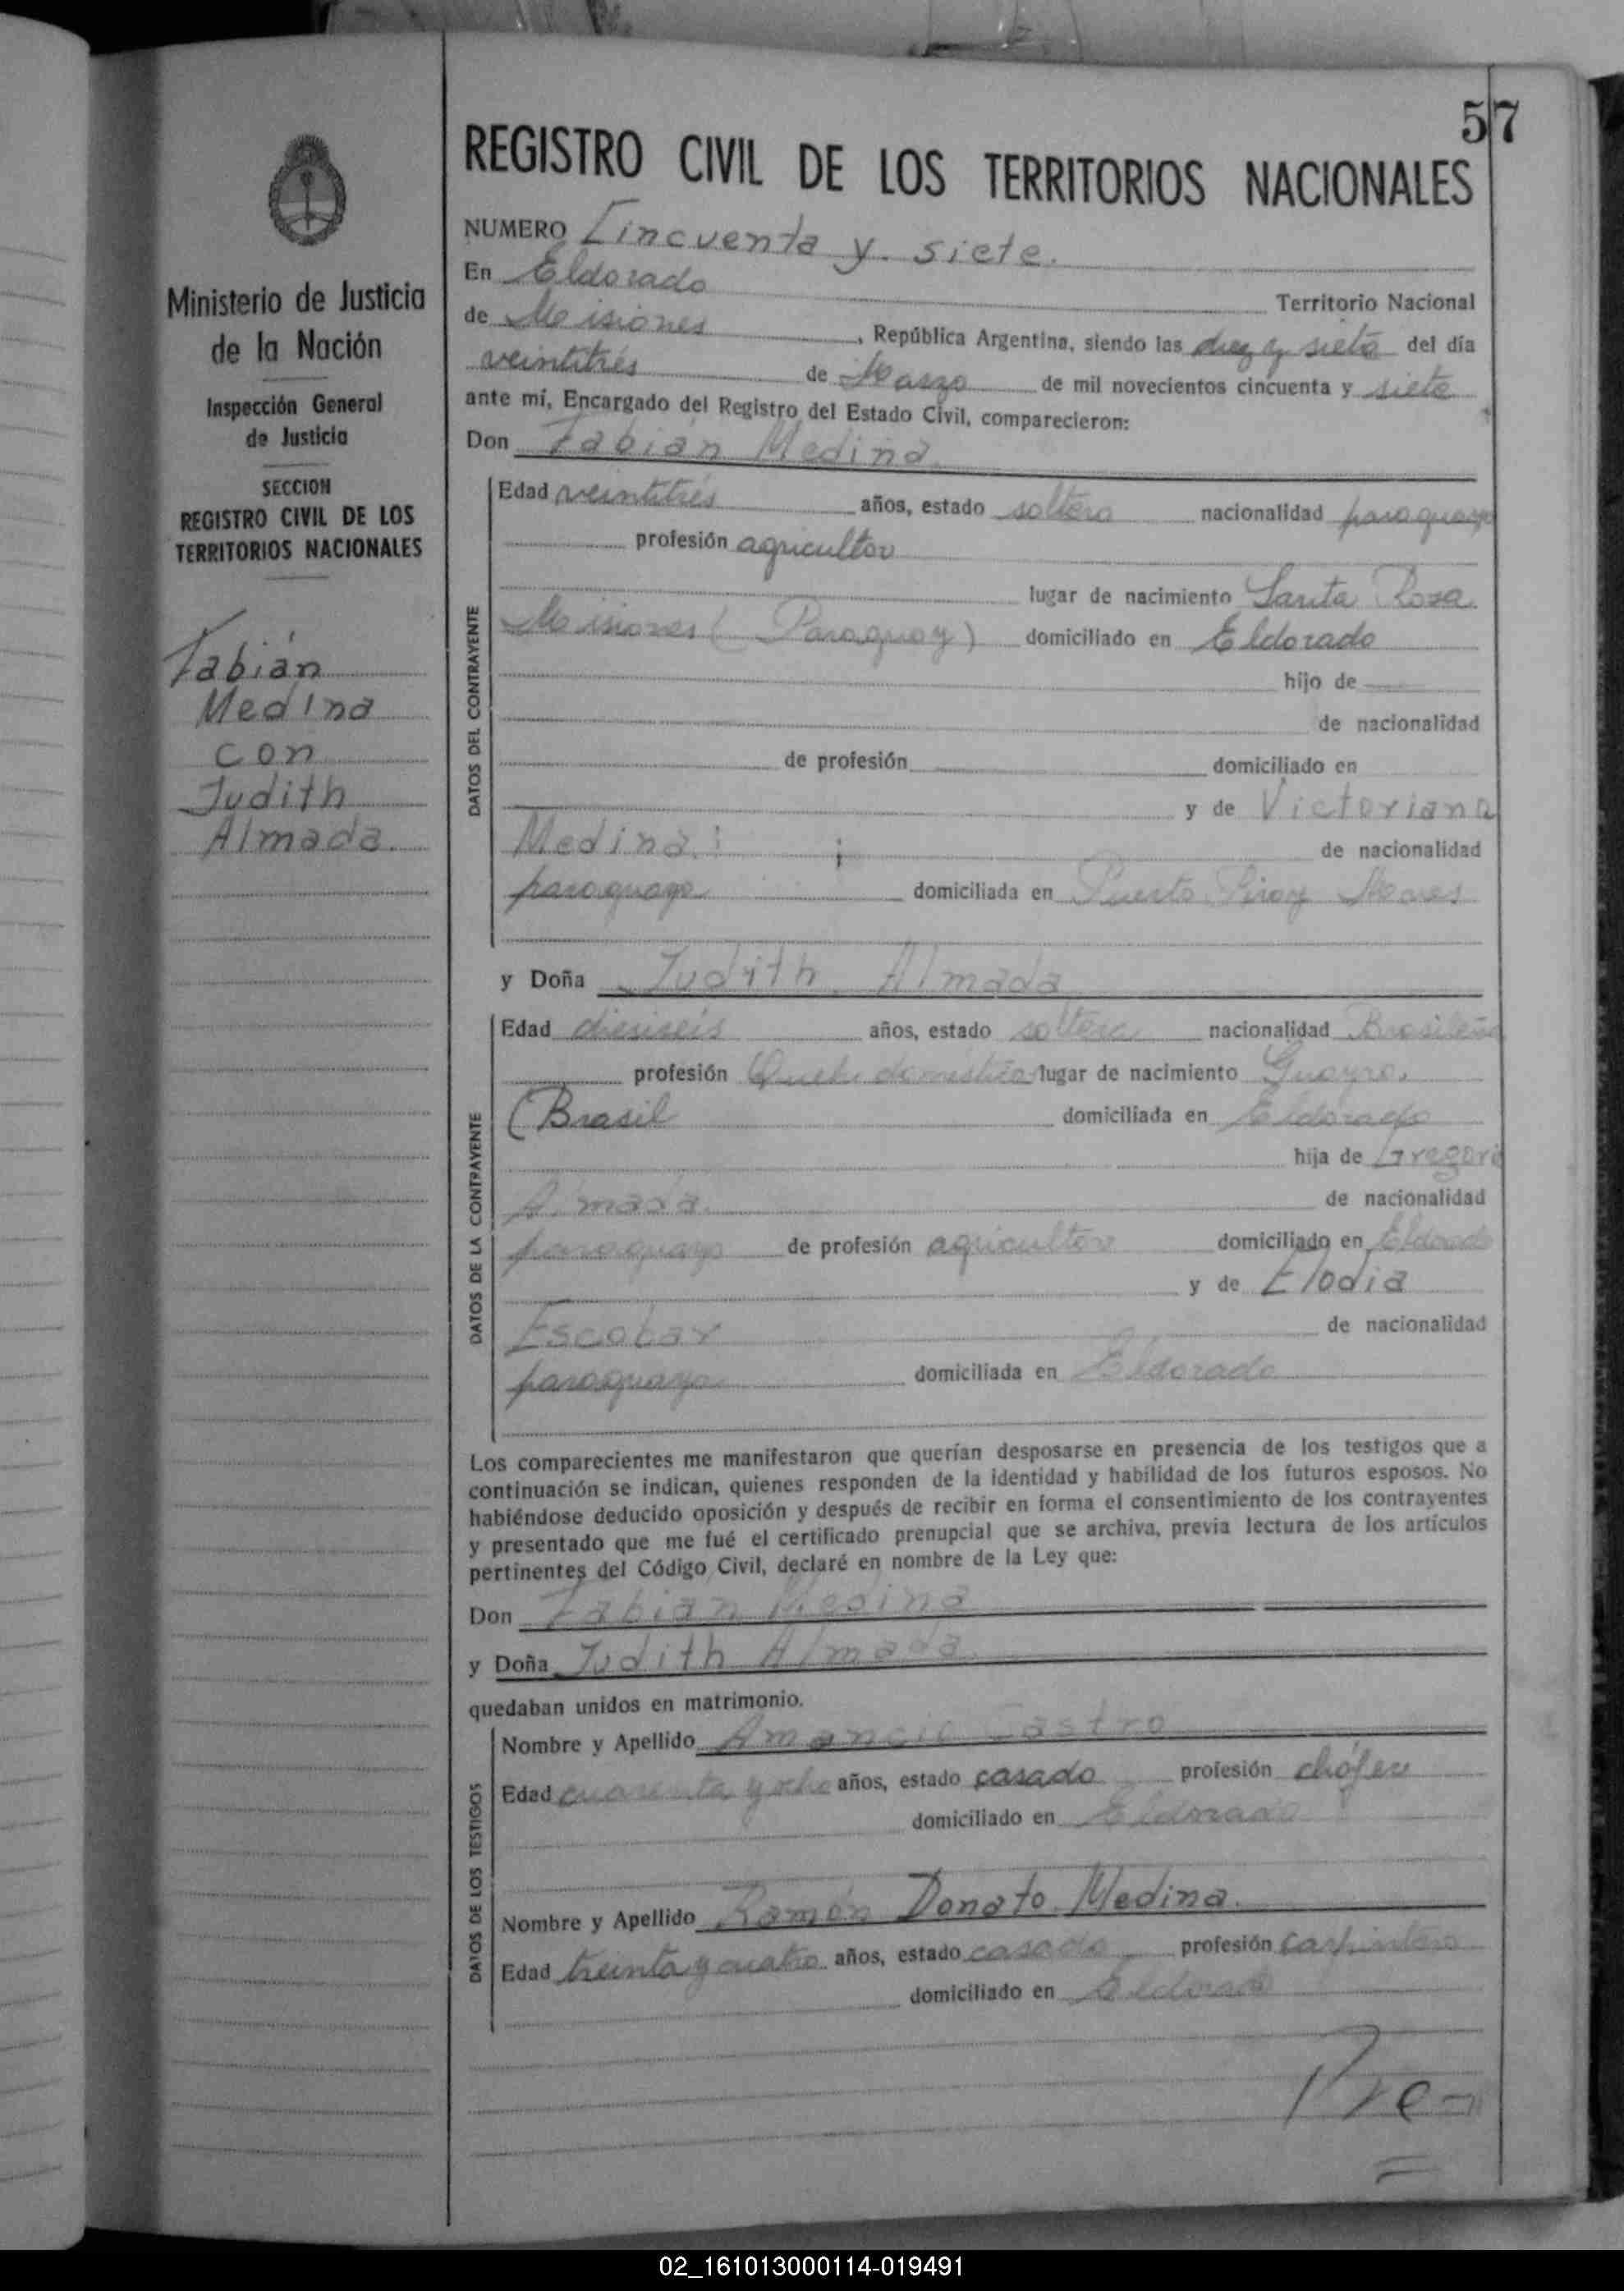 57
REGISTRO CIVIL DE LOS TERRITORIOS NACIONALES
Ministerio de Justicia
de la Nación
Inspección General
de Justicia
SECCION
REGISTRO CIVIL DE LOS
TERRITORIOS NACIONALES
Fabián
Medina
con
Judith
Almada.
NUMERO Cincuenta y siete.
En Eldorado Territorio Nacional
de Misiones, República Argentina, siendo las diez y siete del día
veintitrés de Marzo de mil novecientos cincuenta y siete
ante mí, Encargado del Registro del Estado Civil, comparecieron:
Don Fabián Medina
DATOS DEL CONTRAYENTE
Edad veintitrés años, estado soltero nacionalidad paraguayo
profesión agricultor
lugar de nacimiento Santa Rosa
Misiones (Paraguay) domiciliado en Eldorado
hijo de
de nacionalidad
de profesión domiciliado en
y de Victoriana
Medina; de nacionalidad
paraguaya domiciliada en Puerto Piray
y Doña Judith Almada
DATOS DE LA CONTRAYENTE
Edad dieciseis años, estado soltera nacionalidad Brasileña
profesión Queh. domésticos lugar de nacimiento Guayra.
(Brasil domiciliada en Eldorado
hija de Gregorio
Almada de nacionalidad
paraguayo de profesión agricultor domiciliado en Eldorado
y de Elodia
Escobar de nacionalidad
paraguaya domiciliada en Eldorado
Los comparecientes me manifestaron que querían desposarse en presencia de los testigos que a
continuación se indican, quienes responden de la identidad y habilidad de los futuros esposos. No
habiéndose deducido oposición y después de recibir en forma el consentimiento de los contrayentes
y presentado que me fué el certificado prenupcial que se archiva, previa lectura de los artículos
pertinentes del Código Civil, declaré en nombre de la Ley que:
Don Fabián Medina
y Doña Judith Almada
quedaban unidos en matrimonio.
DATOS DE LOS TESTIGOS
Nombre y Apellido Amancio Castro
Edad cuarenta y ocho años, estado casado profesión chófer
domiciliado en Eldorado
Nombre y Apellido Ramón Donato Medina.
Edad treinta y cuatro años, estado casado profesión carpintero
domiciliado en Eldorado
02_161013000114-019491